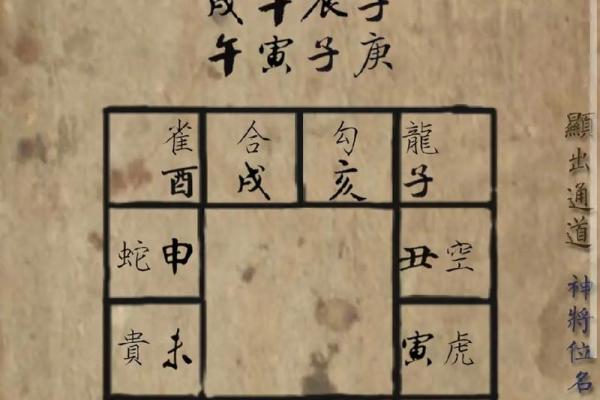 戌午辰子
午寅子庚
雀 合 勾 龍
酉 戌 亥 子
蛇申 丑空
貴未 寅虎
顯出通道 神將位名